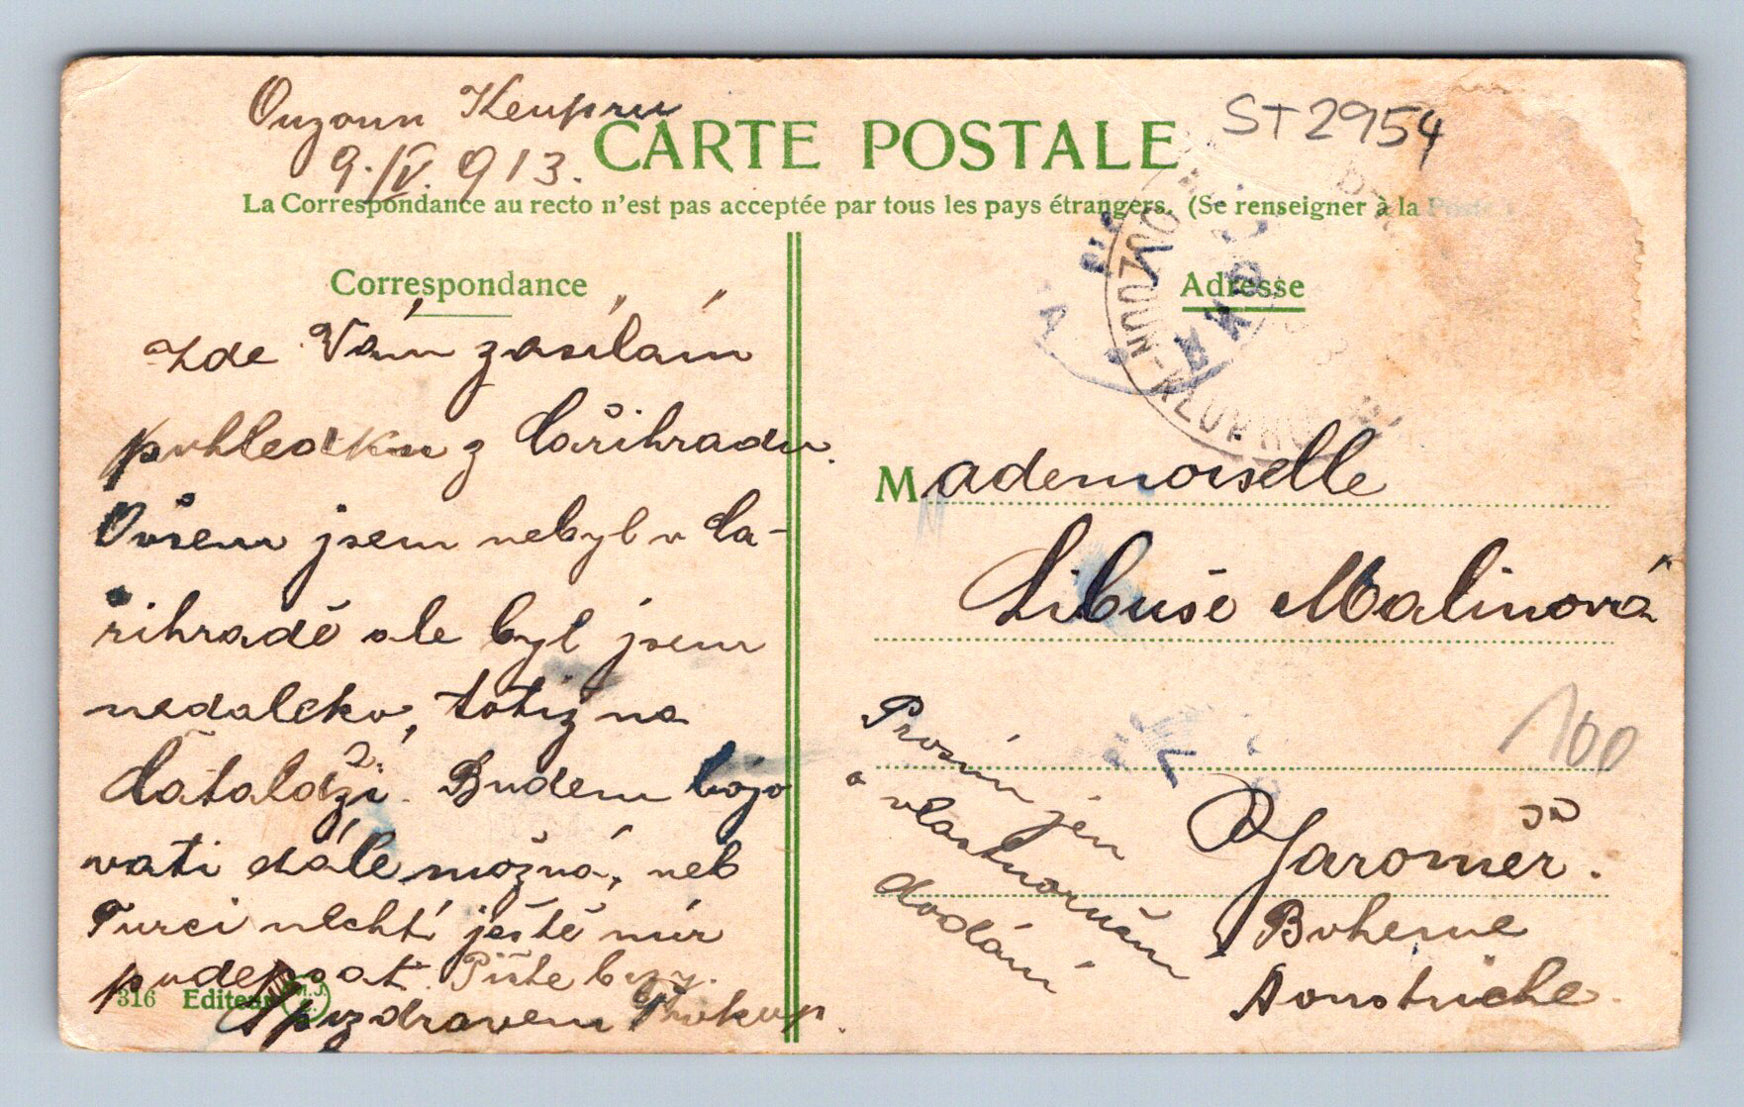 Ouzoun Keupru
9. IV. 913.
ST2954
CARTE POSTALE
La Correspondance au recto n'est pas acceptée par tous les pays étrangers. (Se renseigner à la Poste
Correspondance
Zde Vám zasílám
pohledku z Cařihradu.
Ovšem jsem nebyl v Ca-
řihradě ale byl jsem
nedaleko, totiž na
Čataldži. Budem bojo
vati dále možná, neb
Turci nechtí ještě mír
podepsat. Pište brzy.
S pozdravem Prokop.
316 Editeur M.J.C.
Adresse
OUZOUN-KEUPRU
Mademoiselle
Libuše Malinová
100
Prosím jen
o vlastnoruční
dodání
Jaroměř.
Boheme
Aoustriche.